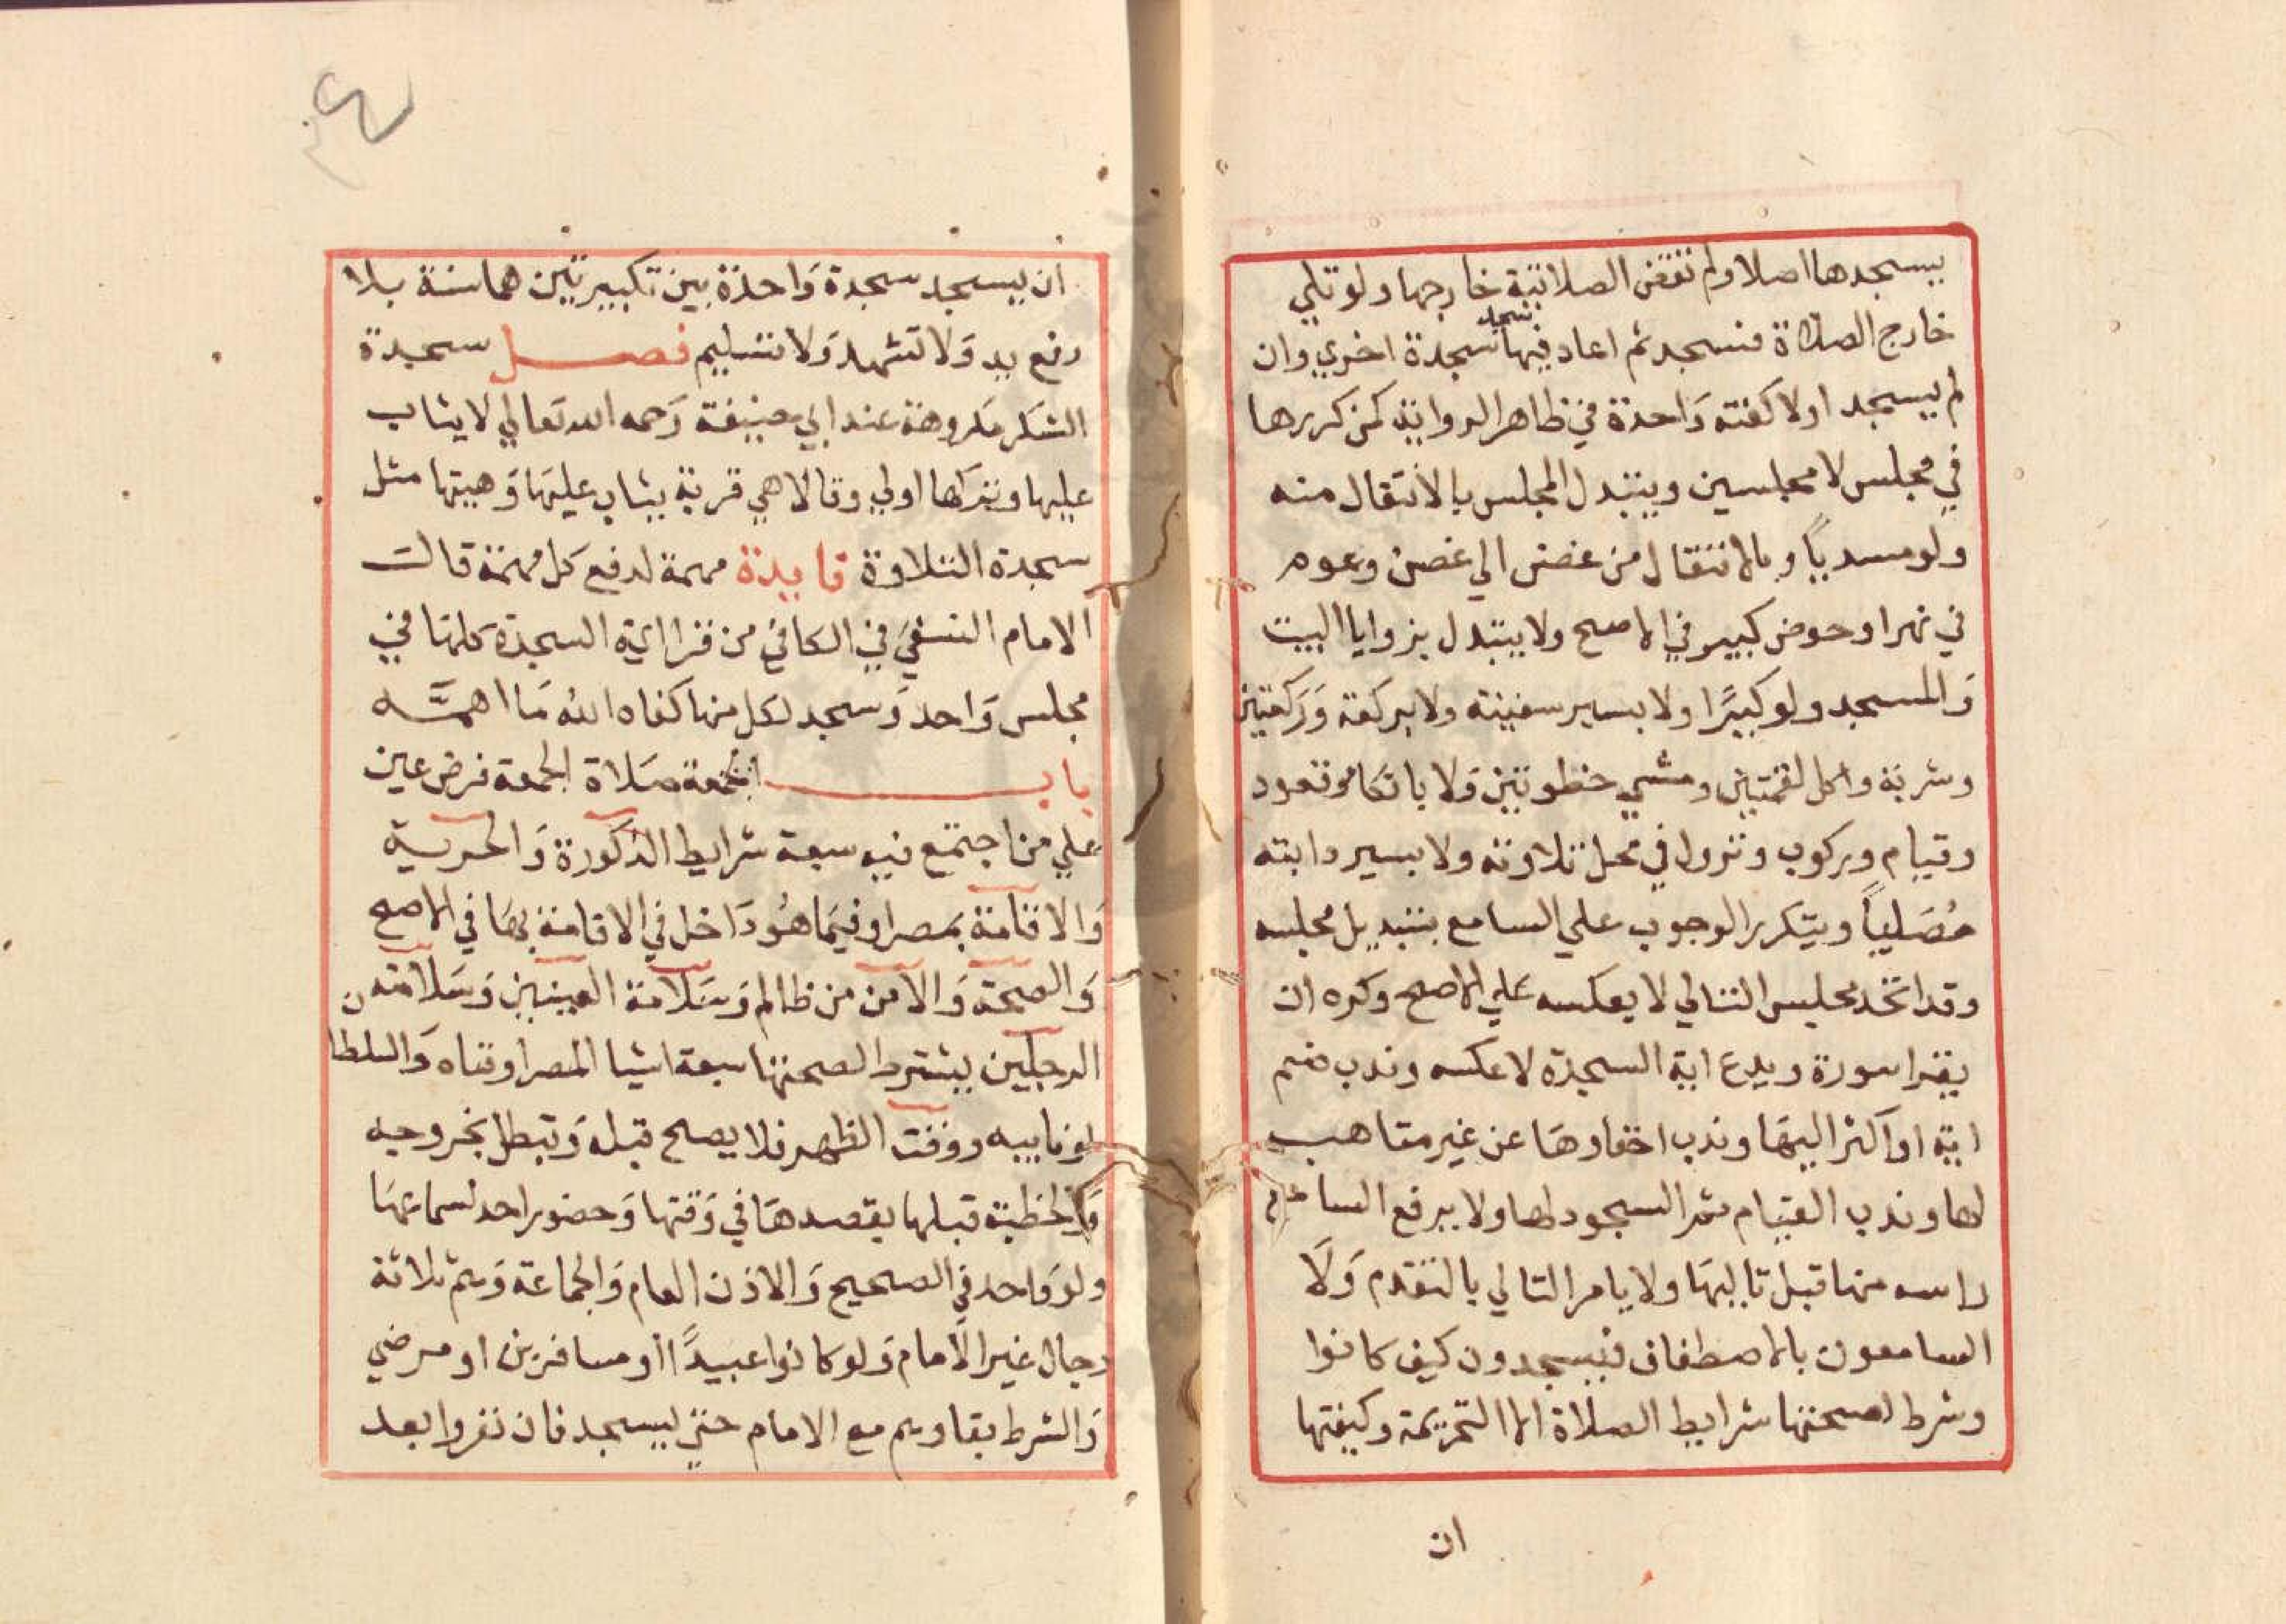 يسجدها اصلا ولم تقض الصلاتية خارجها ولو تلي
خارج الصلاة فسجد ثم اعاد فيها سجد سجدة اخري وان
لم يسجد اولا كفته وَاحدة في ظاهر الرواية كمن كررها
في مجلس لا مجلسين ويتبدل المجلس بالانتقال منه
ولو مسدياً وبالانتقال من غصن الي غصن وعوم
في نهر او حوض كبير في الاصح ولا يتبدل بزوايا البيت
وَالمسجد ولو كبيرًا ولا بسير سفينة ولا بركعة وَركعتين
وشربة واكل لقمتين ومشي خطوتين وَلا باتكا وقعود
وقيام وركوب ونزول في محل تلاوته ولا بسير دابته
مُصَلياً ويتكرر الوجوب علي السامع بتبديل مجلسه
وقد اتخد مجليس التالي لا يعكسه علي الاصح وكره ان
يقرا سورة ويدع اية السجدة لا عكسه وندب ضم
اية او اكثر اليهَا وندب اخفاوهَا عن غير متاهب
لها وندب القيام ثم السجود لها ولا يرفع السامع
راسه منها قبل تاليهَا ولا يامر التالي بالتقدم وَلَا
السامعون بالاصطفاف فيسجدون كيف كانوا
وشرط لصحتها شرايط الصلاة الا التحريمة وكيفتها
ان
ان يسجد سجدة وَاحدة بين تكبيرتين هما سنة بلا
رفع يد وَلا تشهد وَلا تسليم فصل سجدة
الشكر مكروهة عند ابي حنيفة رَحمه الله تعالي لا يثاب
عليها وتركها اولي وقالا هي قربة يثاب عليهَا وَهيتها مثل
سجدة التلاوة فايدة مهمة لدفع كل مهمة قالت
الامام النسفي في الكافي من قرا اية السجدة كلها في
مجلس وَاحد وَسجد لكل منها كفاه الله مَا اهمَّه
باب الجمعة صَلاة الجمعة فرض عين
علي من اجتمع فيه سبعة شرايط الذكورة وَالحرية
وَالاقامة بمصر او فيمَا هُو دَاخل في الاقامة بهَا في الاصح
وَالصحة وَالامن من ظالم وَسَلامة العينين وَسَلامة ن
الرجلين يشترط لصحتها سبعة اشيا المصر او فناه وَالسلطا
او نايبه ووقت الظهر فلا يصح قبله وَتبطل بخروجه
وَالخطبة قبلها بقصدهَا في وَقتها وَحضور احد لسماعهَا
ولو وَاحد في الصحيح وَالاذن العام وَالجماعة وَهم ثلاثة
رجال غير الامام وَلو كانوا عبيدًا او مسافرين او مرضي
وَالشرط بقاوهم مع الامام حتي يسجد فان نفروا بعد